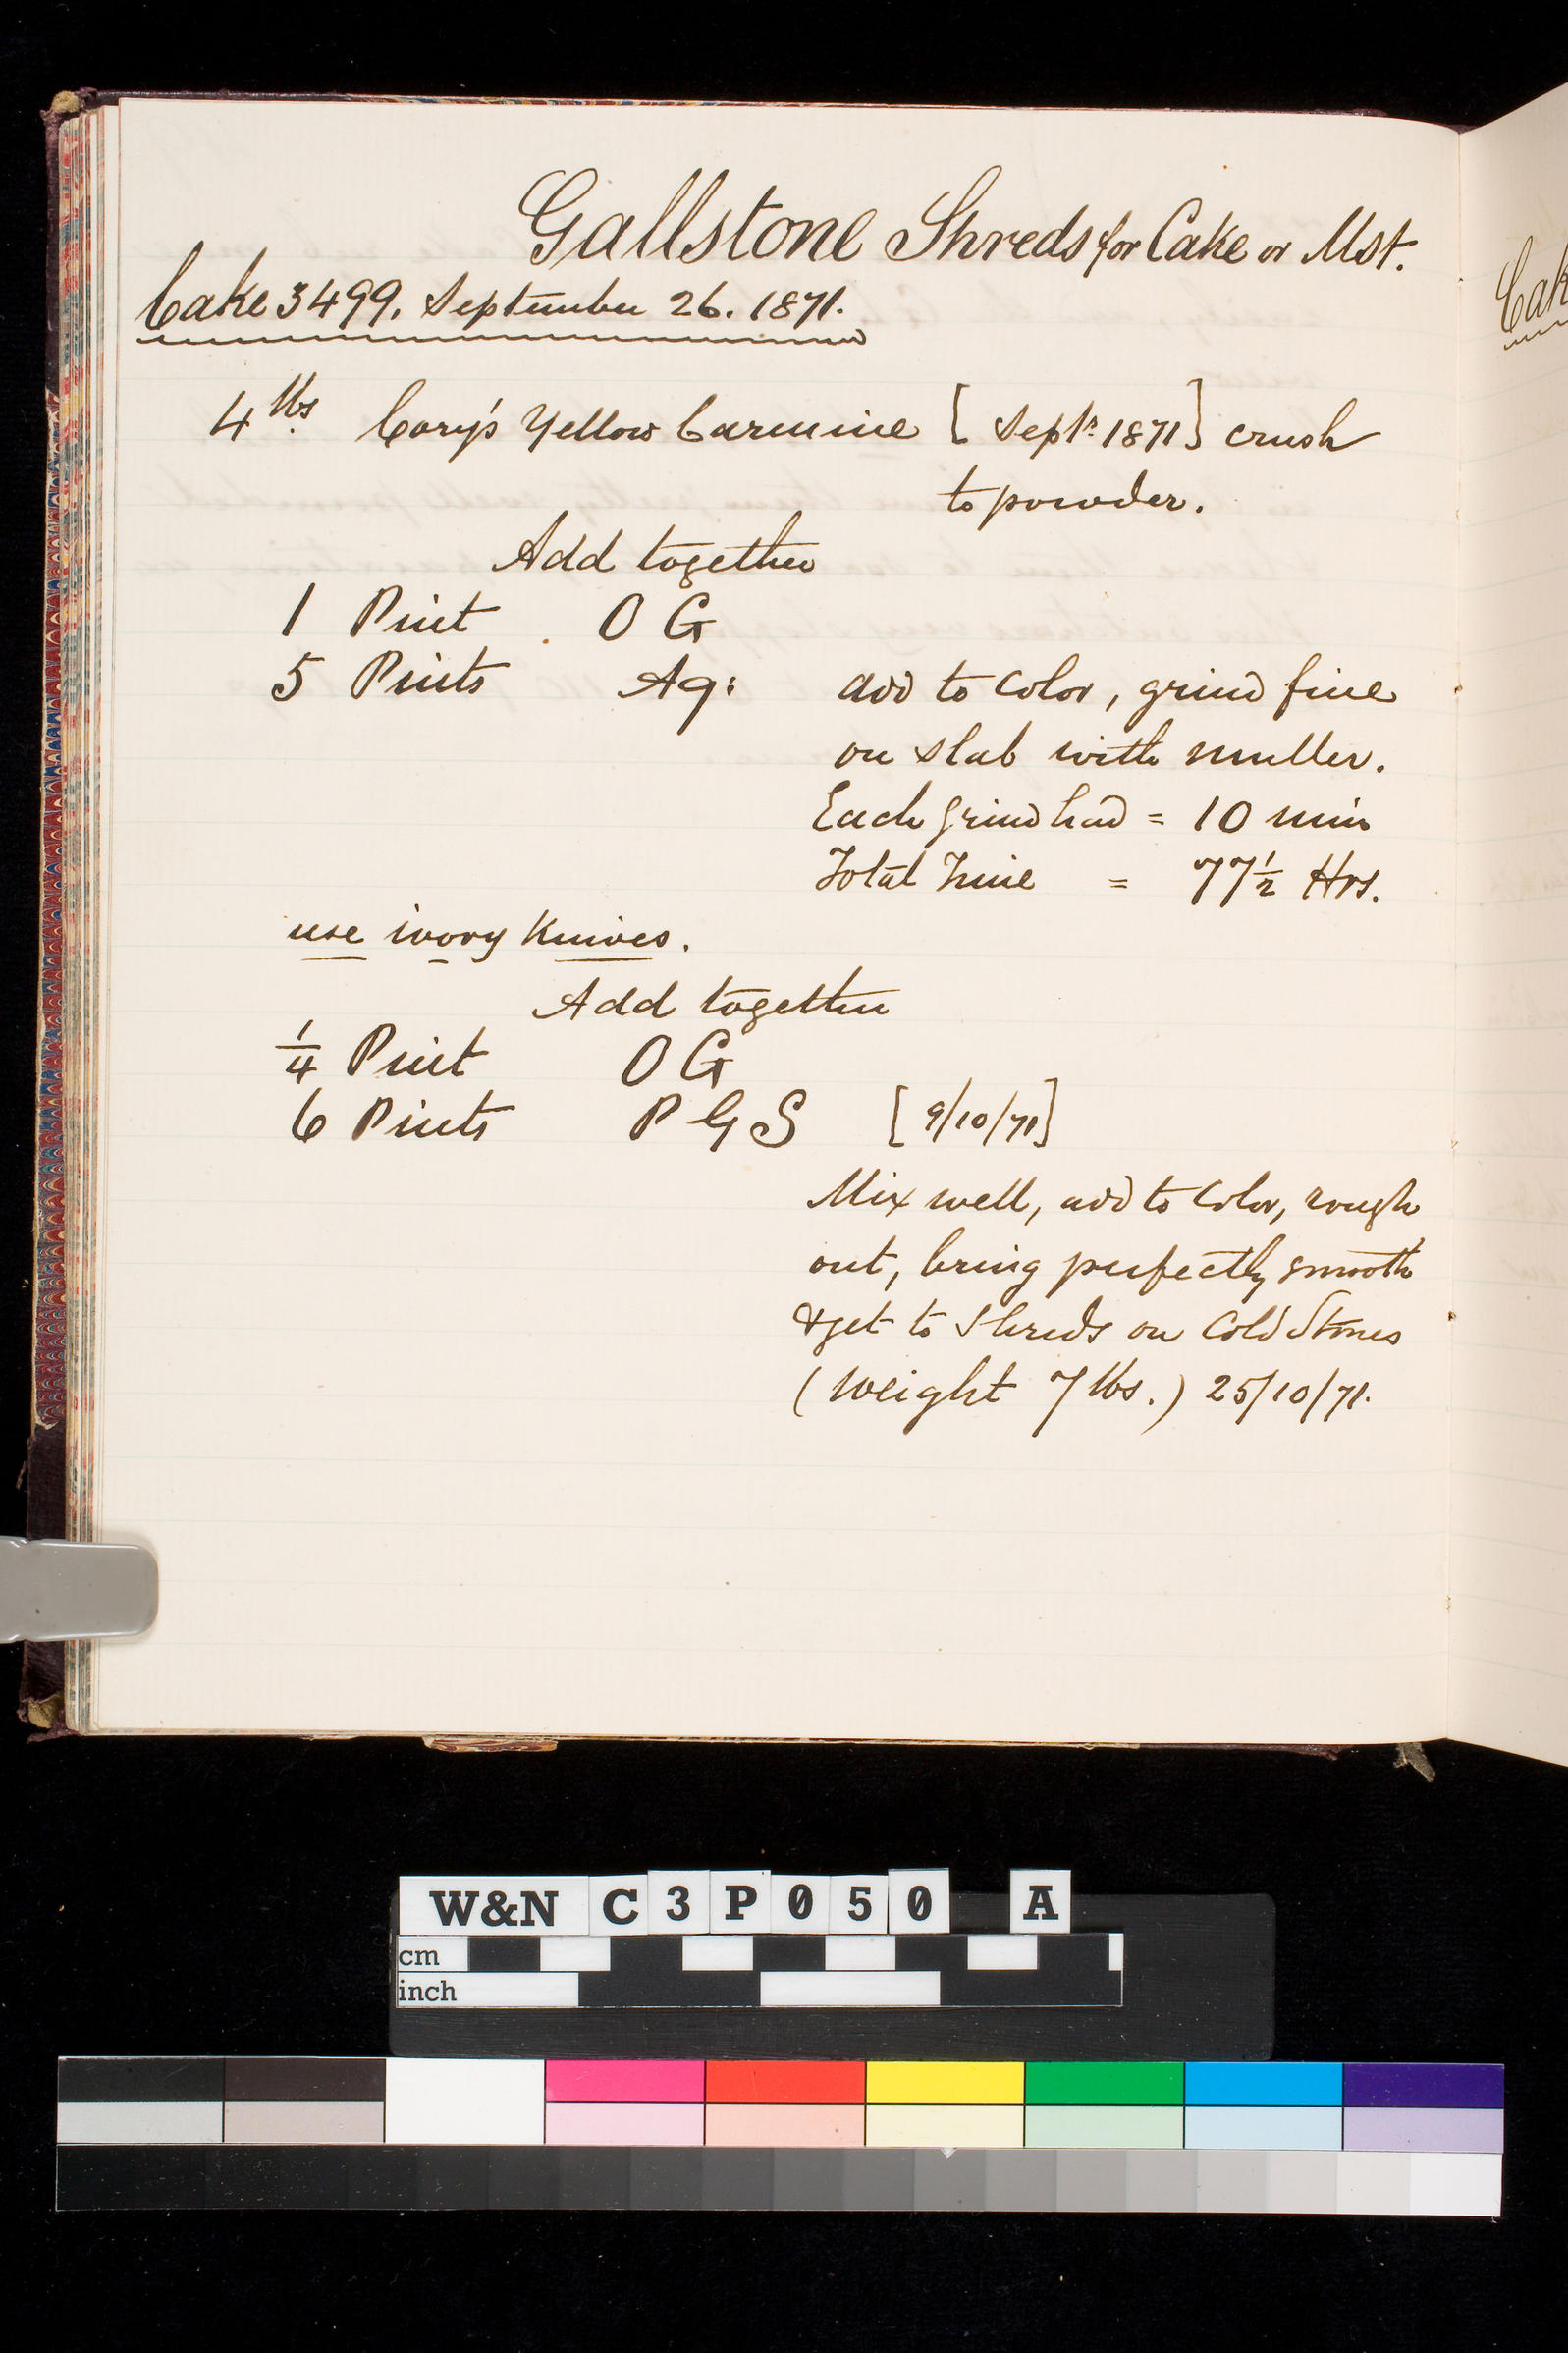 Gallstone Shreds for Cake or Mst.
Cake 3499. September 26. 1871.
4 lbs. Cory's Yellow Carmine [Septr. 1871] crush
to powder.
Add together
1 Pint O G
5 Pints Aq: add to Color, grind fine
on slab with muller.
Each grind had = 10 min
Total Time = 77½ Hrs.
use ivory Knives.
Add together
¼ Pint O G
6 Pints P G S [9/10/71]
Mix well, add to Color, rough
out, bring perfectly smooth
& get to Shreds on Cold Stones
(Weight 7 lbs.) 25/10/71.
Cak
W&N C3P050 A
cm
inch